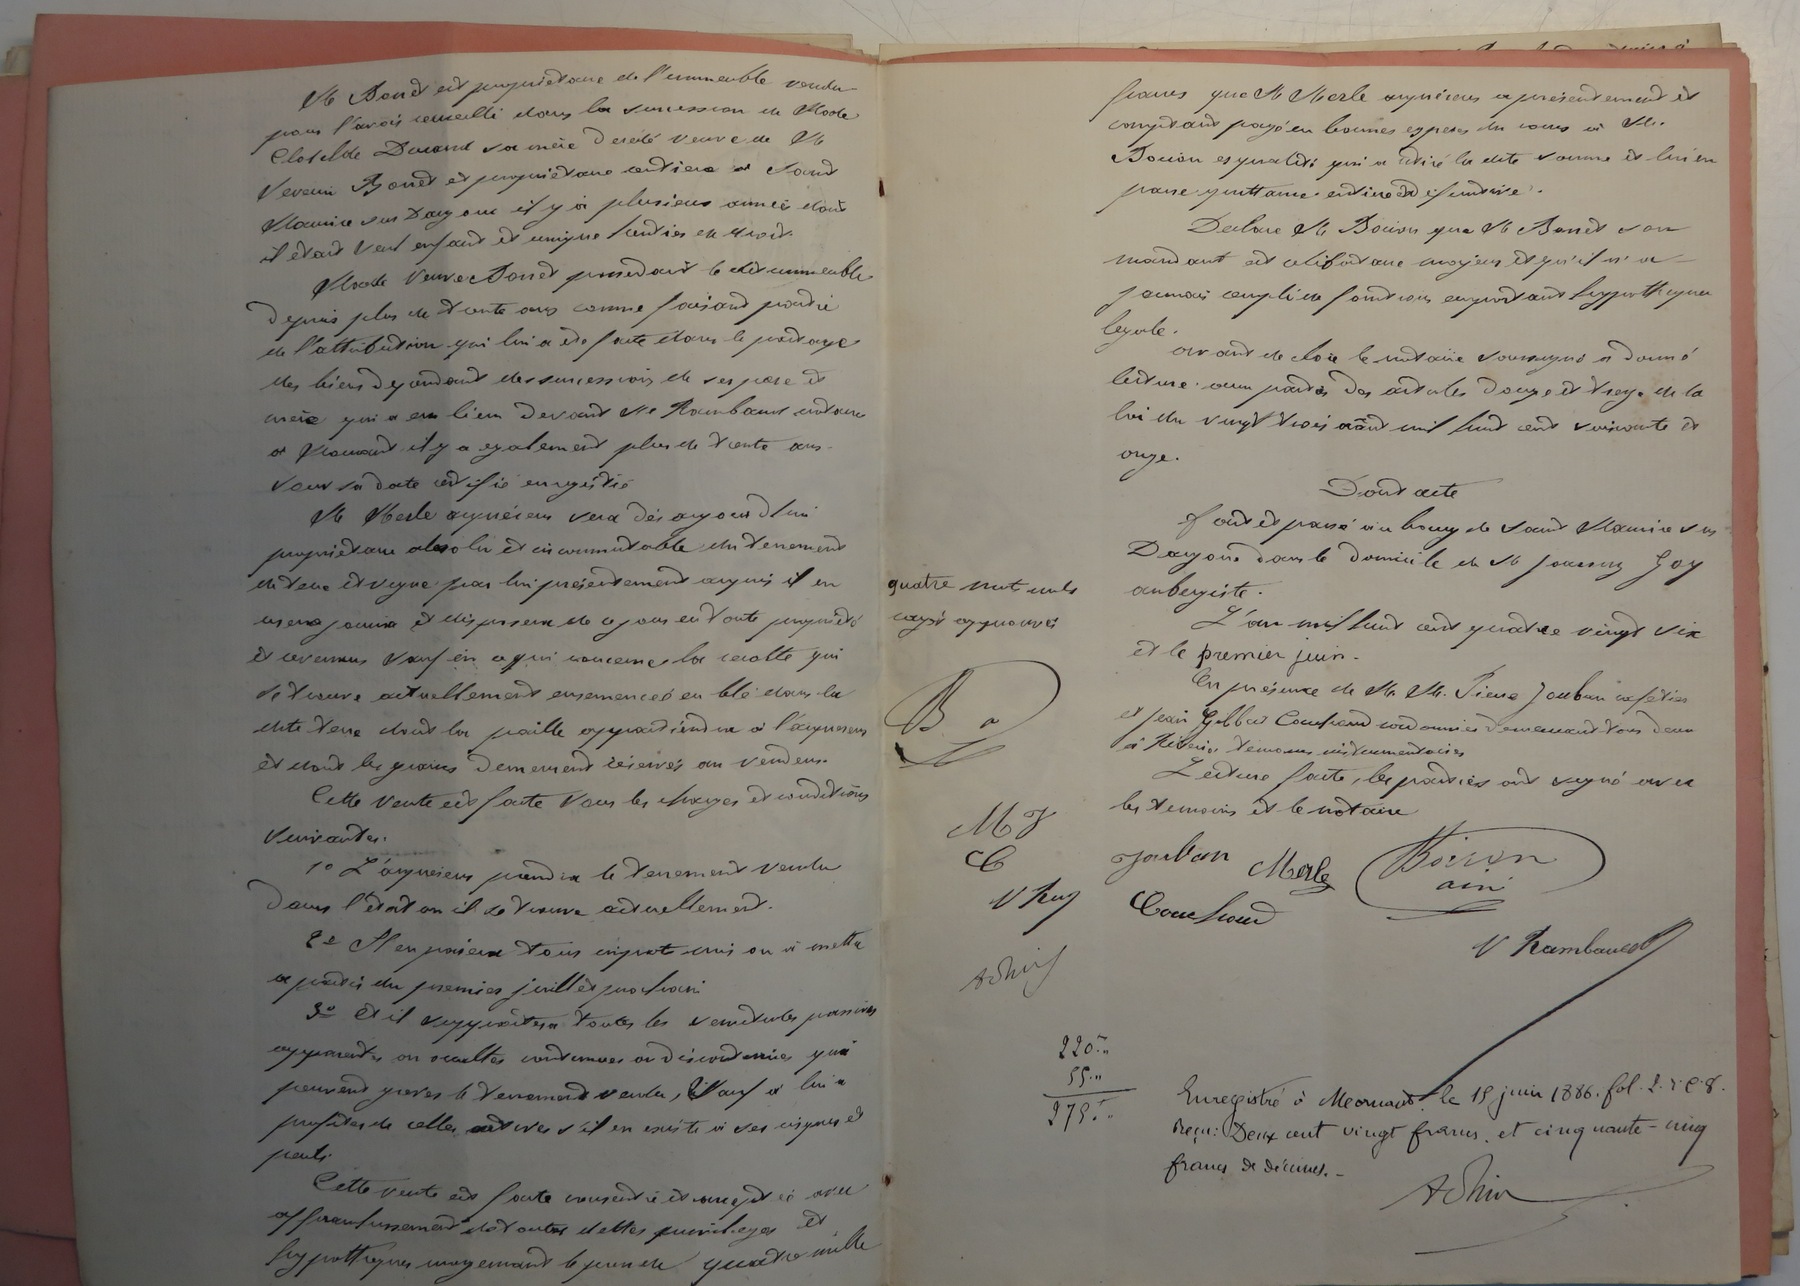 Mr Bonet est propriétaire de l'immeuble vendu
pour l'avoir recueilli dans la succession de Made
Clotilde Durand sa mère décédée veuve de Mr
Severin Bonet et propriétaire rentière a Saint
Maurice sur Dargoire il y a plusieurs années dont
il était seul enfant et unique héritier de droit.
Made Veuve Bonet possedait le dit immeuble
depuis plus de trente ans comme faisant partie
de l'attribution qui lui a été faite dans le partage
des biens dépendant des successions de ses père et
mère qui a eu lieu devant Me Rambaud notaire
a Mornant il y a egalement plus de trente ans
sous sa date certifié enregistré
Mr Merle acquéreur sera dès aujourd'hui
propriétaire absolu et incommutable du tenement
de terre et vigne par lui présentement acquis il en
usera jouira et disposera de ce jour en toute propriété
et revenus sauf en ce qui concerne la recolte qui
se trouve actuellement ensemencée en blé dans la
dite terre dont la paille appartiendra à l'acquéreur
et dont les grains demeurent réservés au vendeur.
Cette vente est faite sous les charges et conditions
suivantes.
1o L'acquéreur prendra le tenement vendu
dans l'état où il se trouve actuellement.
2o Il en paiera tous impot mis ou à mettre
a partir du premier juillet prochain
3o Et il supportera toutes les servitudes passives
apparentes ou occultes continues ou discontinues qui
peuvent grever le tenement vendu, sauf a lui a
profiter de celles actives s'il en existe à ses risques et
perils.
Cette vente est faite consentie et acceptée avec
affranchissement de toutes dettes privilèges et
hypothèques moyennant le prix de quatre mille
francs que Mr Merle acquéreur a présentement et
comptant payé en bonnes espèces du cours à Mr.
Boiron es qualité qui a retiré la dite somme et lui en
passe quittance entière et définitive.
Declare Mr Boiron que Mr Bonet son
mandant est célibataire majeur et qu'il n'a
jamais rempli de fonctions emportant hypothèque
légale.
avant de clore le notaire soussigné a donné
lecture aux parties des articles douze et treize de la
loi du vingt trois août mil huit cent soixante et
onze.
Dont acte
fait et passé au bourg de Saint Maurice sur
Dargoire dans le domicile de Mr Goy
aubergiste.
L'an mil huit cent quatre vingt six
et le premier juin.
En présence de M. M. Pierre Jouban cafetier
et Jean Couchoud cordonnier demeurant tous deux
à Riverie témoins instrumentaires
Lecture faite, les parties ont signé avec
les témoins et le notaire
quatre mots nuls
rayés approuvés
B a
M J
C
V Ray
Jouban Merle Boiron
ainé
Couchoud
V Rambaud
220f"
55"
275f"
Enregistré à Mornant, le 15 juin 1886. fol. 2. r. c. 8.
Reçu: Deux cent vingt francs, et cinquante-cinq
francs de décimes.